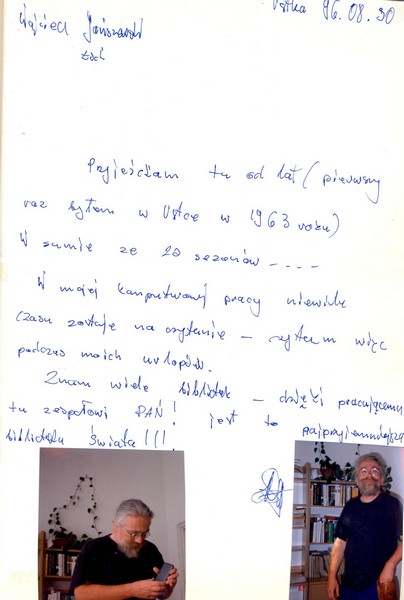 Wojciech
Ustka 96.08.30
Łódź
Przyjeżdżam tu od lat (pierwszy
raz byłem w Ustce w 1963 roku)
W sumie ze 20 sezonów ----
W mojej komputerowej pracy niewiele
czasu zostaje na czytanie – czytam więc
podczas moich urlopów.
Znam wiele bibliotek – dzięki pracującemu
tu zespołowi PAŃ! jest to najprzyjemniejsza
biblioteka świata!!!